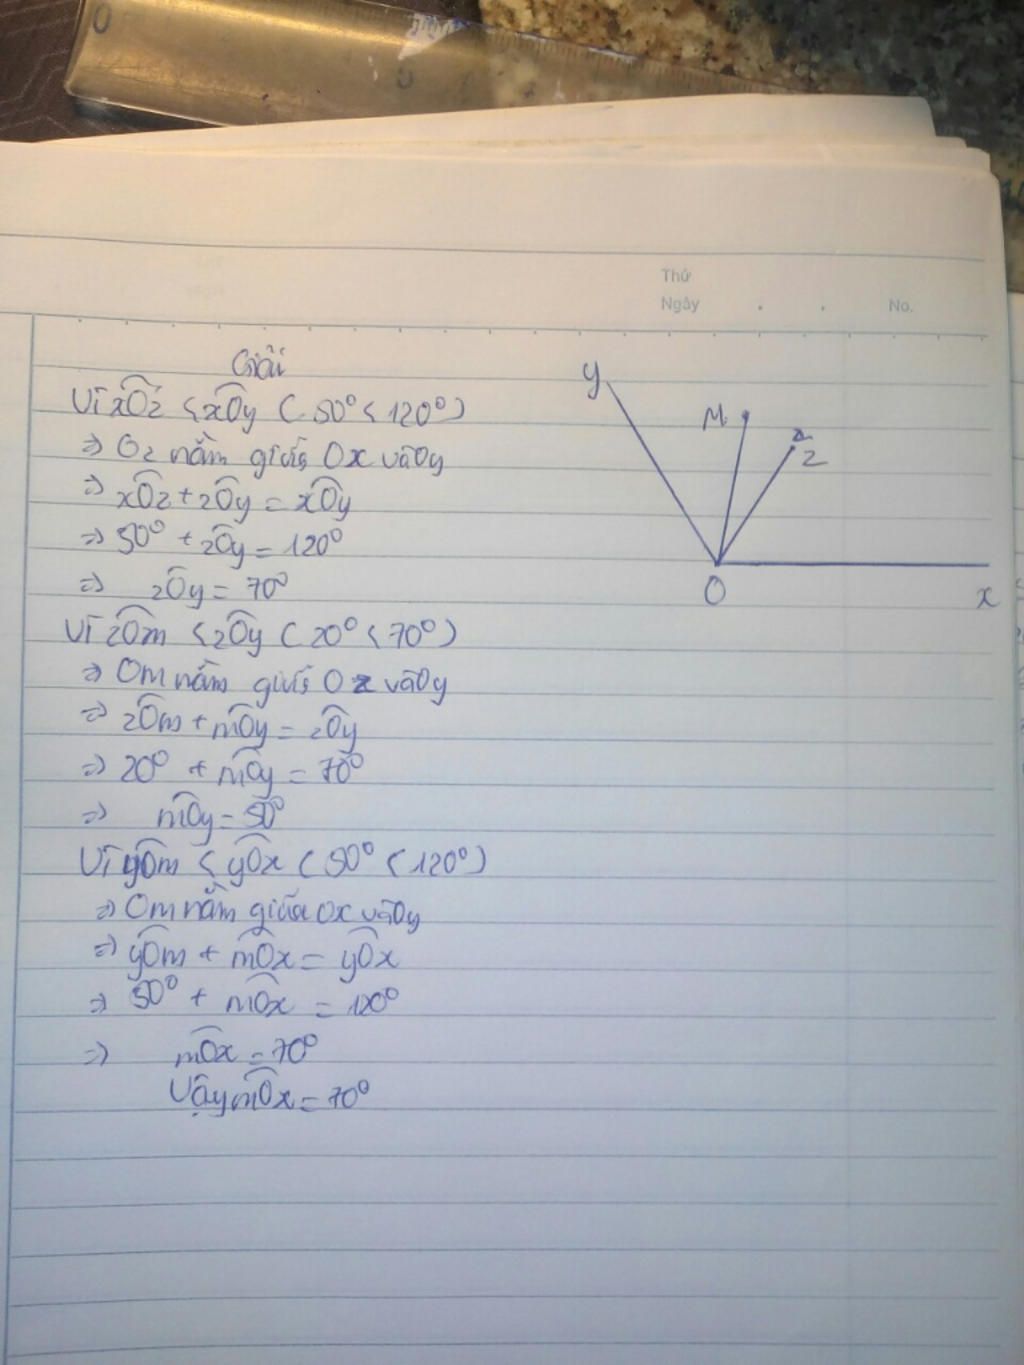 Thứ
Ngày . . No.
Giải
Vì xOz < xOy (50° < 120°)
=> Oz nằm giữa Ox và Oy
=> xOz + zOy = xOy
=> 50° + zOy = 120°
=> zOy = 70°
Vì zOm < zOy (20° < 70°)
=> Om nằm giữa Oz và Oy
=> zOm + mOy = zOy
=> 20° + mOy = 70°
=> mOy = 50°
Vì yOm < yOx (50° < 120°)
=> Om nằm giữa Ox và Oy
=> yOm + mOx = yOx
=> 50° + mOx = 120°
=> mOx = 70°
Vậy mOx = 70°
y
M
z
O
x
0